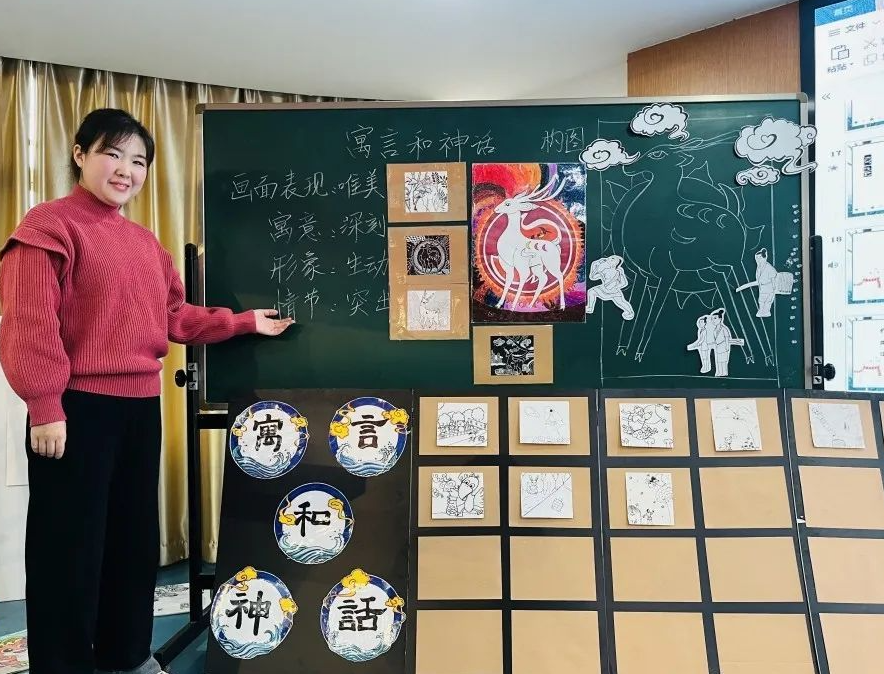 寓言和神话 构图
画面表现:唯美
寓意:深刻
形象:生动
情节:突出
寓 言
和
神 話
文件
粘贴
17
18
19